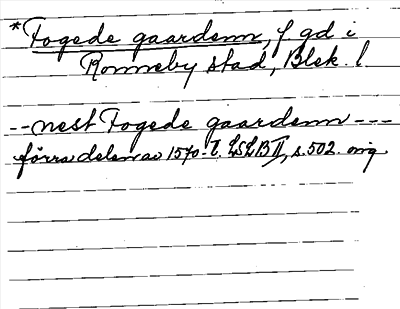 *Fogede gaardenn, f gd i
Ronneby stad, Blek. l.
-- nest Fogede gaardenn ---
förra delen av 1570-t. LSLB II, s. 502. orig.